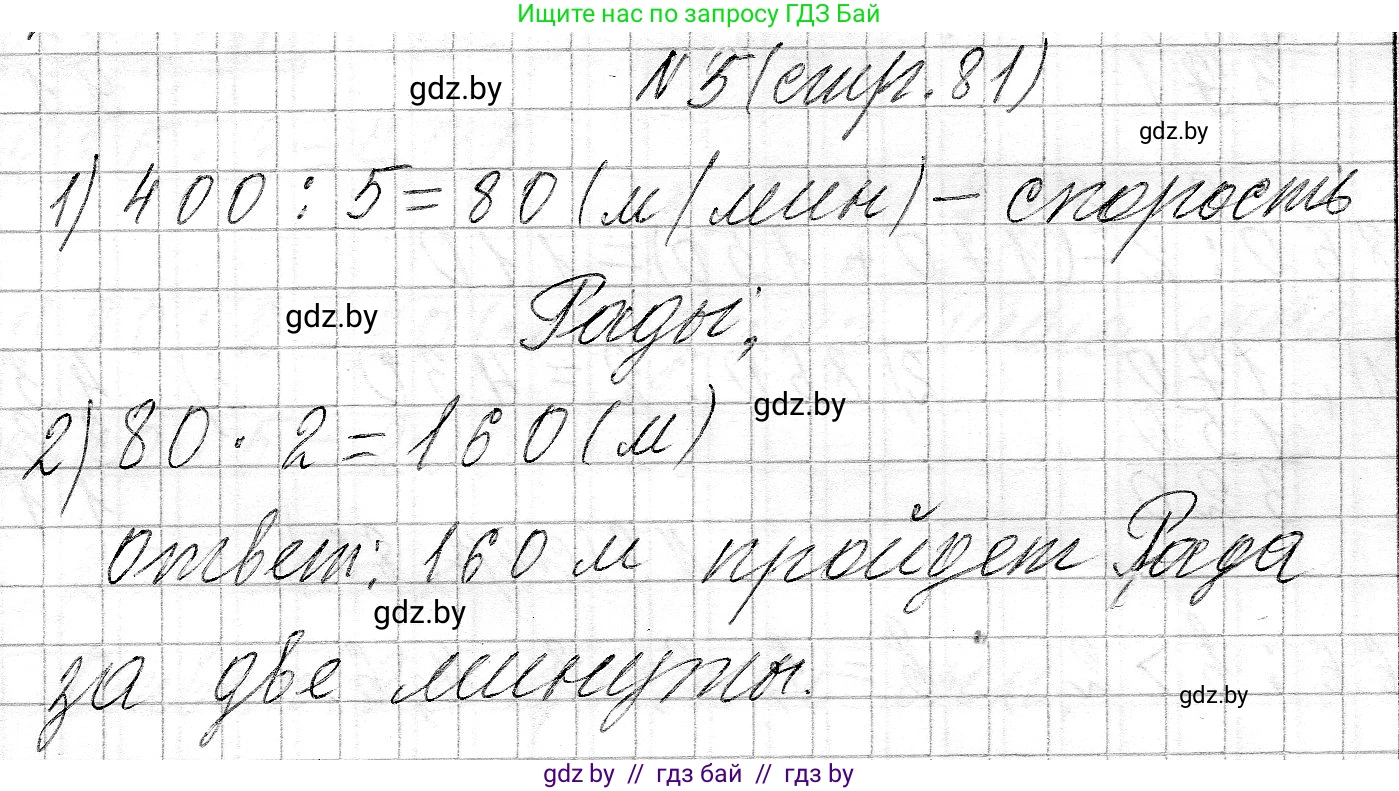 Ищите нас по запросу ГДЗ Бай
gdz.by № 5 (стр. 81)
gdz.by
1) 400 : 5 = 80 (м/мин) – скорость
gdz.by Рады;
2) 80 · 2 = 160 (м) gdz.by
ответ: 160 м пройдет Рада
gdz.by
за две минуты.
gdz.by
gdz by // гдз бай // гдз by